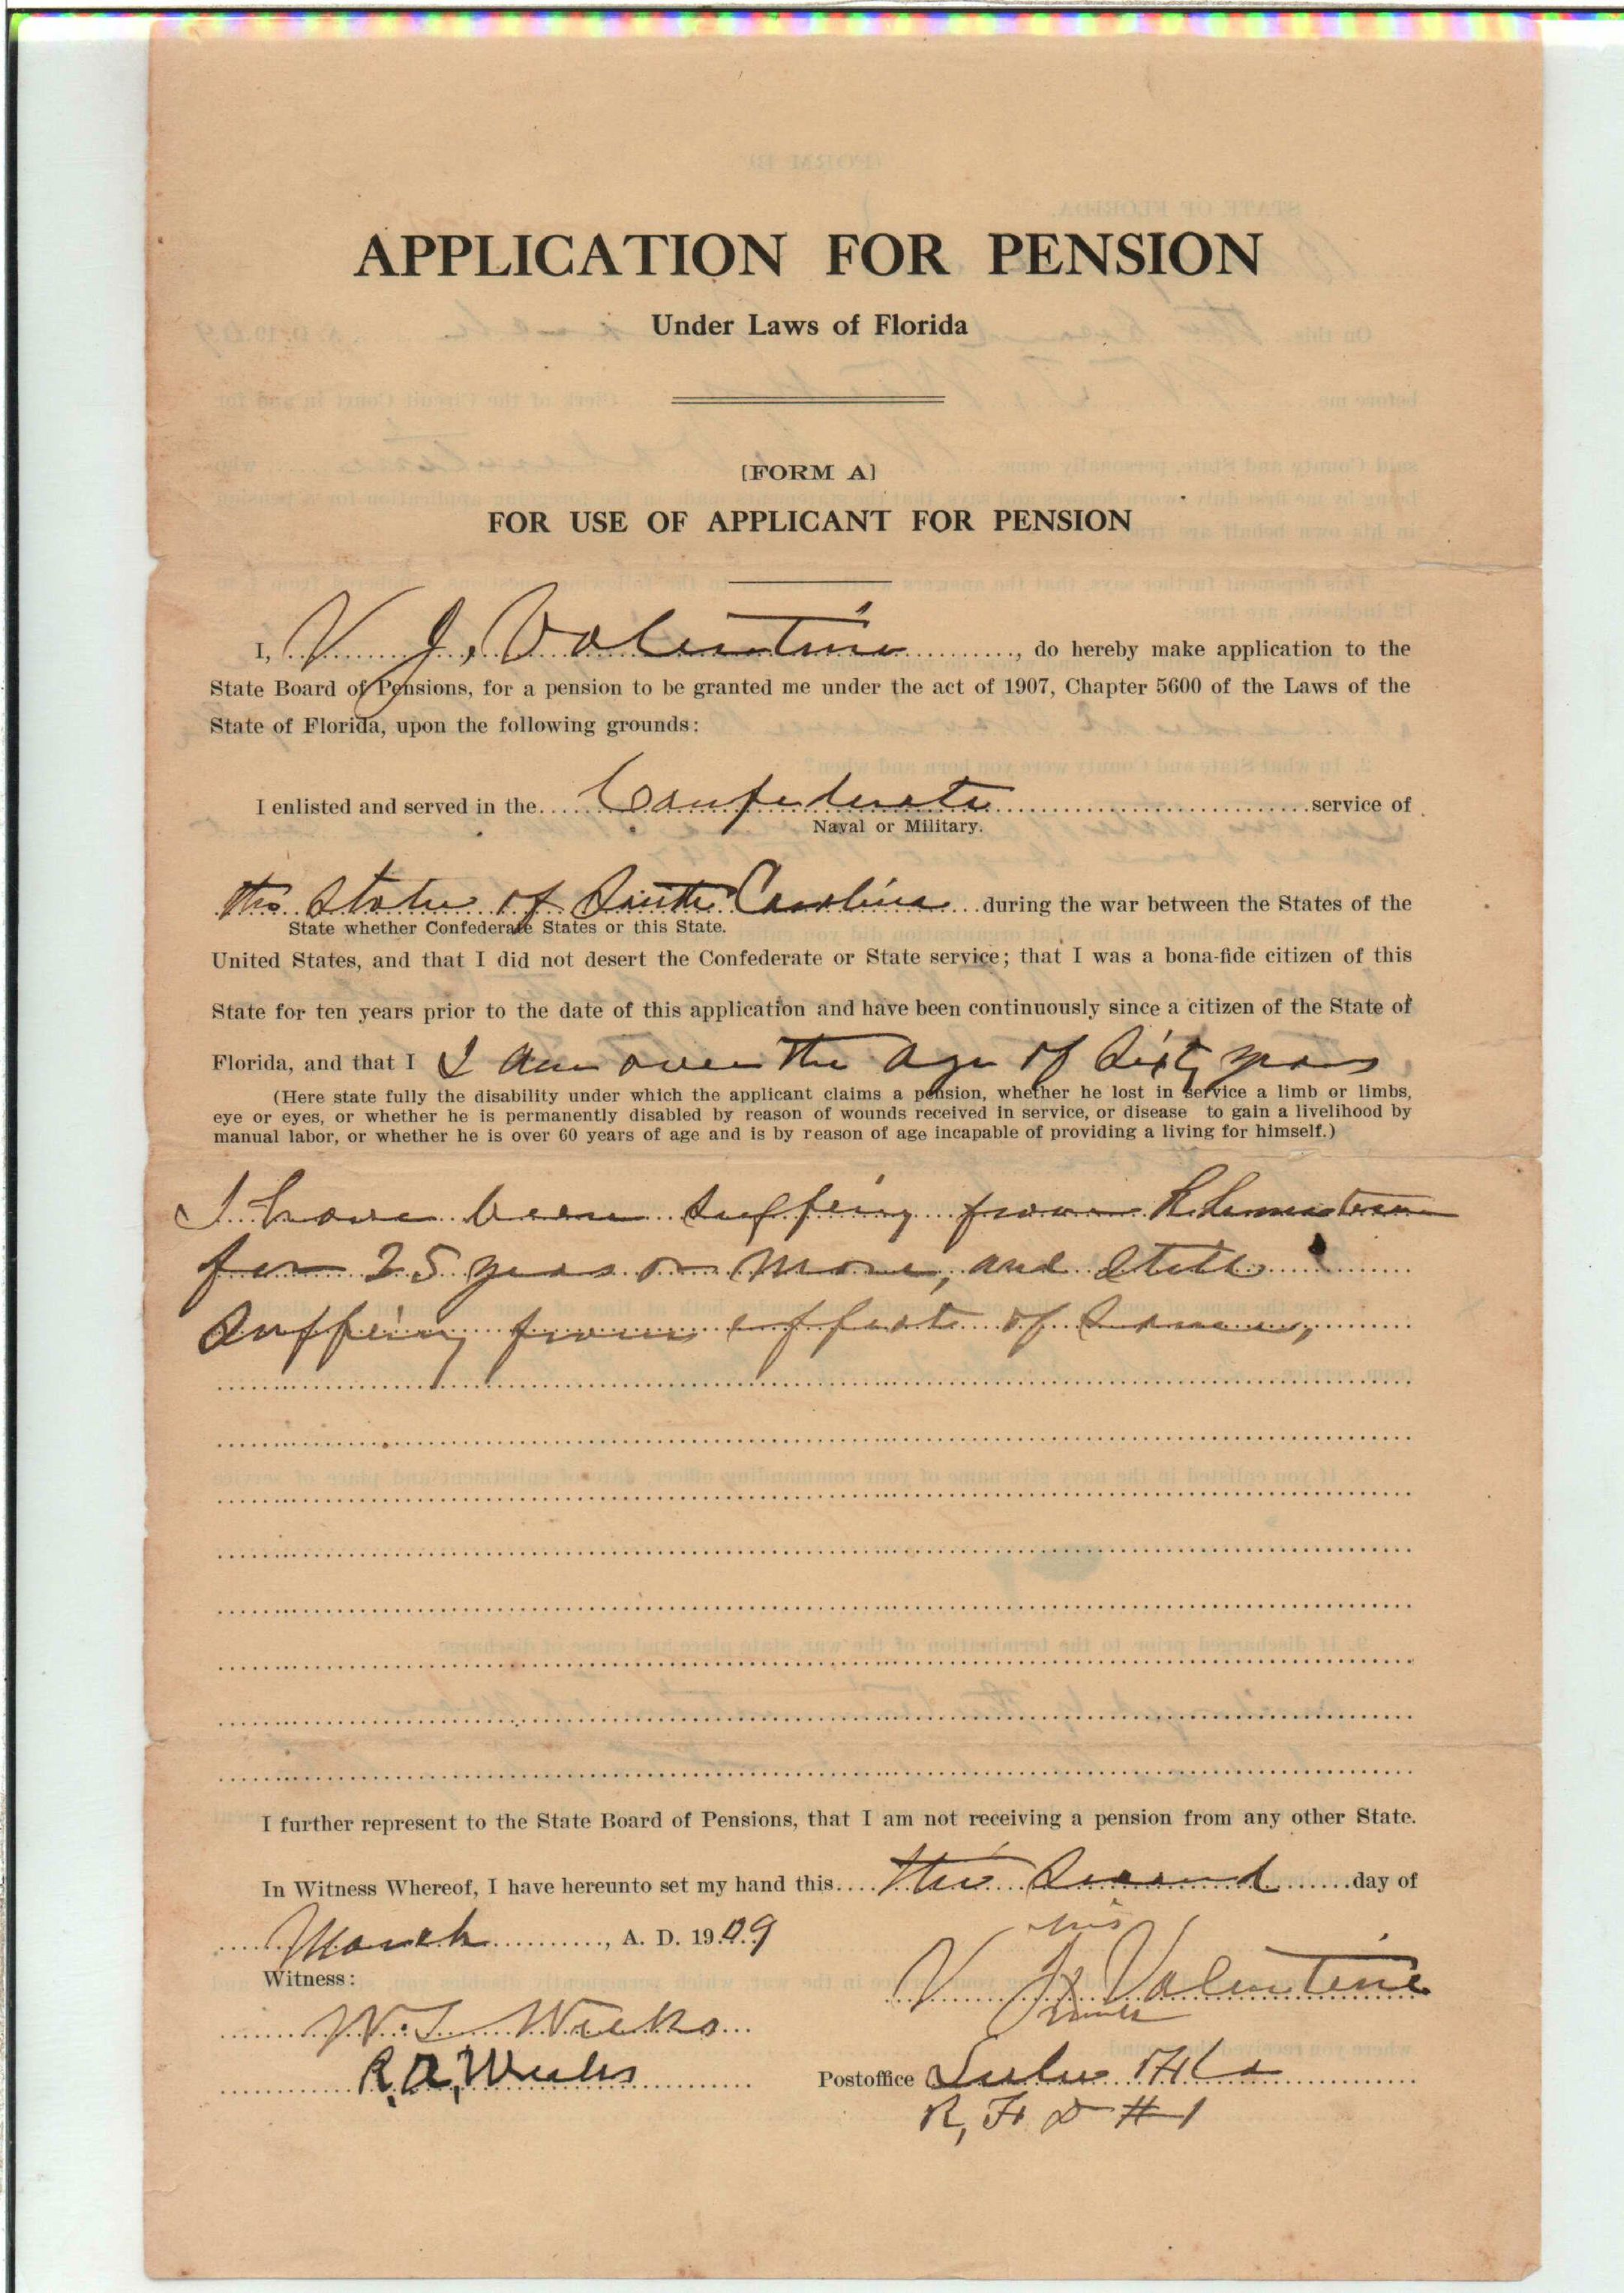 APPLICATION FOR PENSION
Under Laws of Florida
[FORM A]
FOR USE OF APPLICANT FOR PENSION
I, V. J. Valentine, do hereby make application to the
State Board of Pensions, for a pension to be granted me under the act of 1907, Chapter 5600 of the Laws of the
State of Florida, upon the following grounds:
I enlisted and served in the Confederate service of
Naval or Military.
the State of South Carolina during the war between the States of the
State whether Confederate States or this State.
United States, and that I did not desert the Confederate or State service; that I was a bona-fide citizen of this
State for ten years prior to the date of this application and have been continuously since a citizen of the State of
Florida, and that I I am over the age of Sixty years
(Here state fully the disability under which the applicant claims a pension, whether he lost in service a limb or limbs,
eye or eyes, or whether he is permanently disabled by reason of wounds received in service, or disease to gain a livelihood by
manual labor, or whether he is over 60 years of age and is by reason of age incapable of providing a living for himself.)
I have been suffering from
for 25 years or more, and still
suffering from effects of same,
I further represent to the State Board of Pensions, that I am not receiving a pension from any other State.
In Witness Whereof, I have hereunto set my hand this this Second day of
March, A. D. 1909
his
Witness:
V. Valentine
W. T. Weeks
R A, Weeks
Postoffice Lulu Fla
R, F D #1